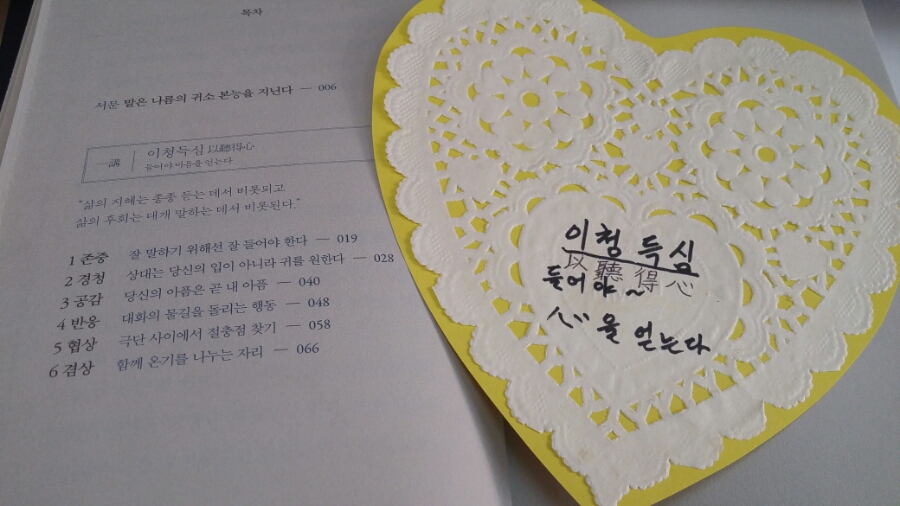 목차
서문 말은 나름의 귀소 본능을 지닌다 — 006
一講 이청득심 以聽得心
들어야 마음을 얻는다
"삶의 지혜는 종종 듣는 데서 비롯되고
삶의 후회는 대개 말하는 데서 비롯된다."
1 존중 잘 말하기 위해선 잘 들어야 한다 — 019
2 경청 상대는 당신의 입이 아니라 귀를 원한다 — 028
3 공감 당신의 아픔은 곧 내 아픔 — 040
4 반응 대화의 물길을 돌리는 행동 — 048
5 협상 극단 사이에서 절충점 찾기 — 058
6 겸상 함께 온기를 나누는 자리 — 066
이청득심
以聽得心
들어야~
心을 얻는다